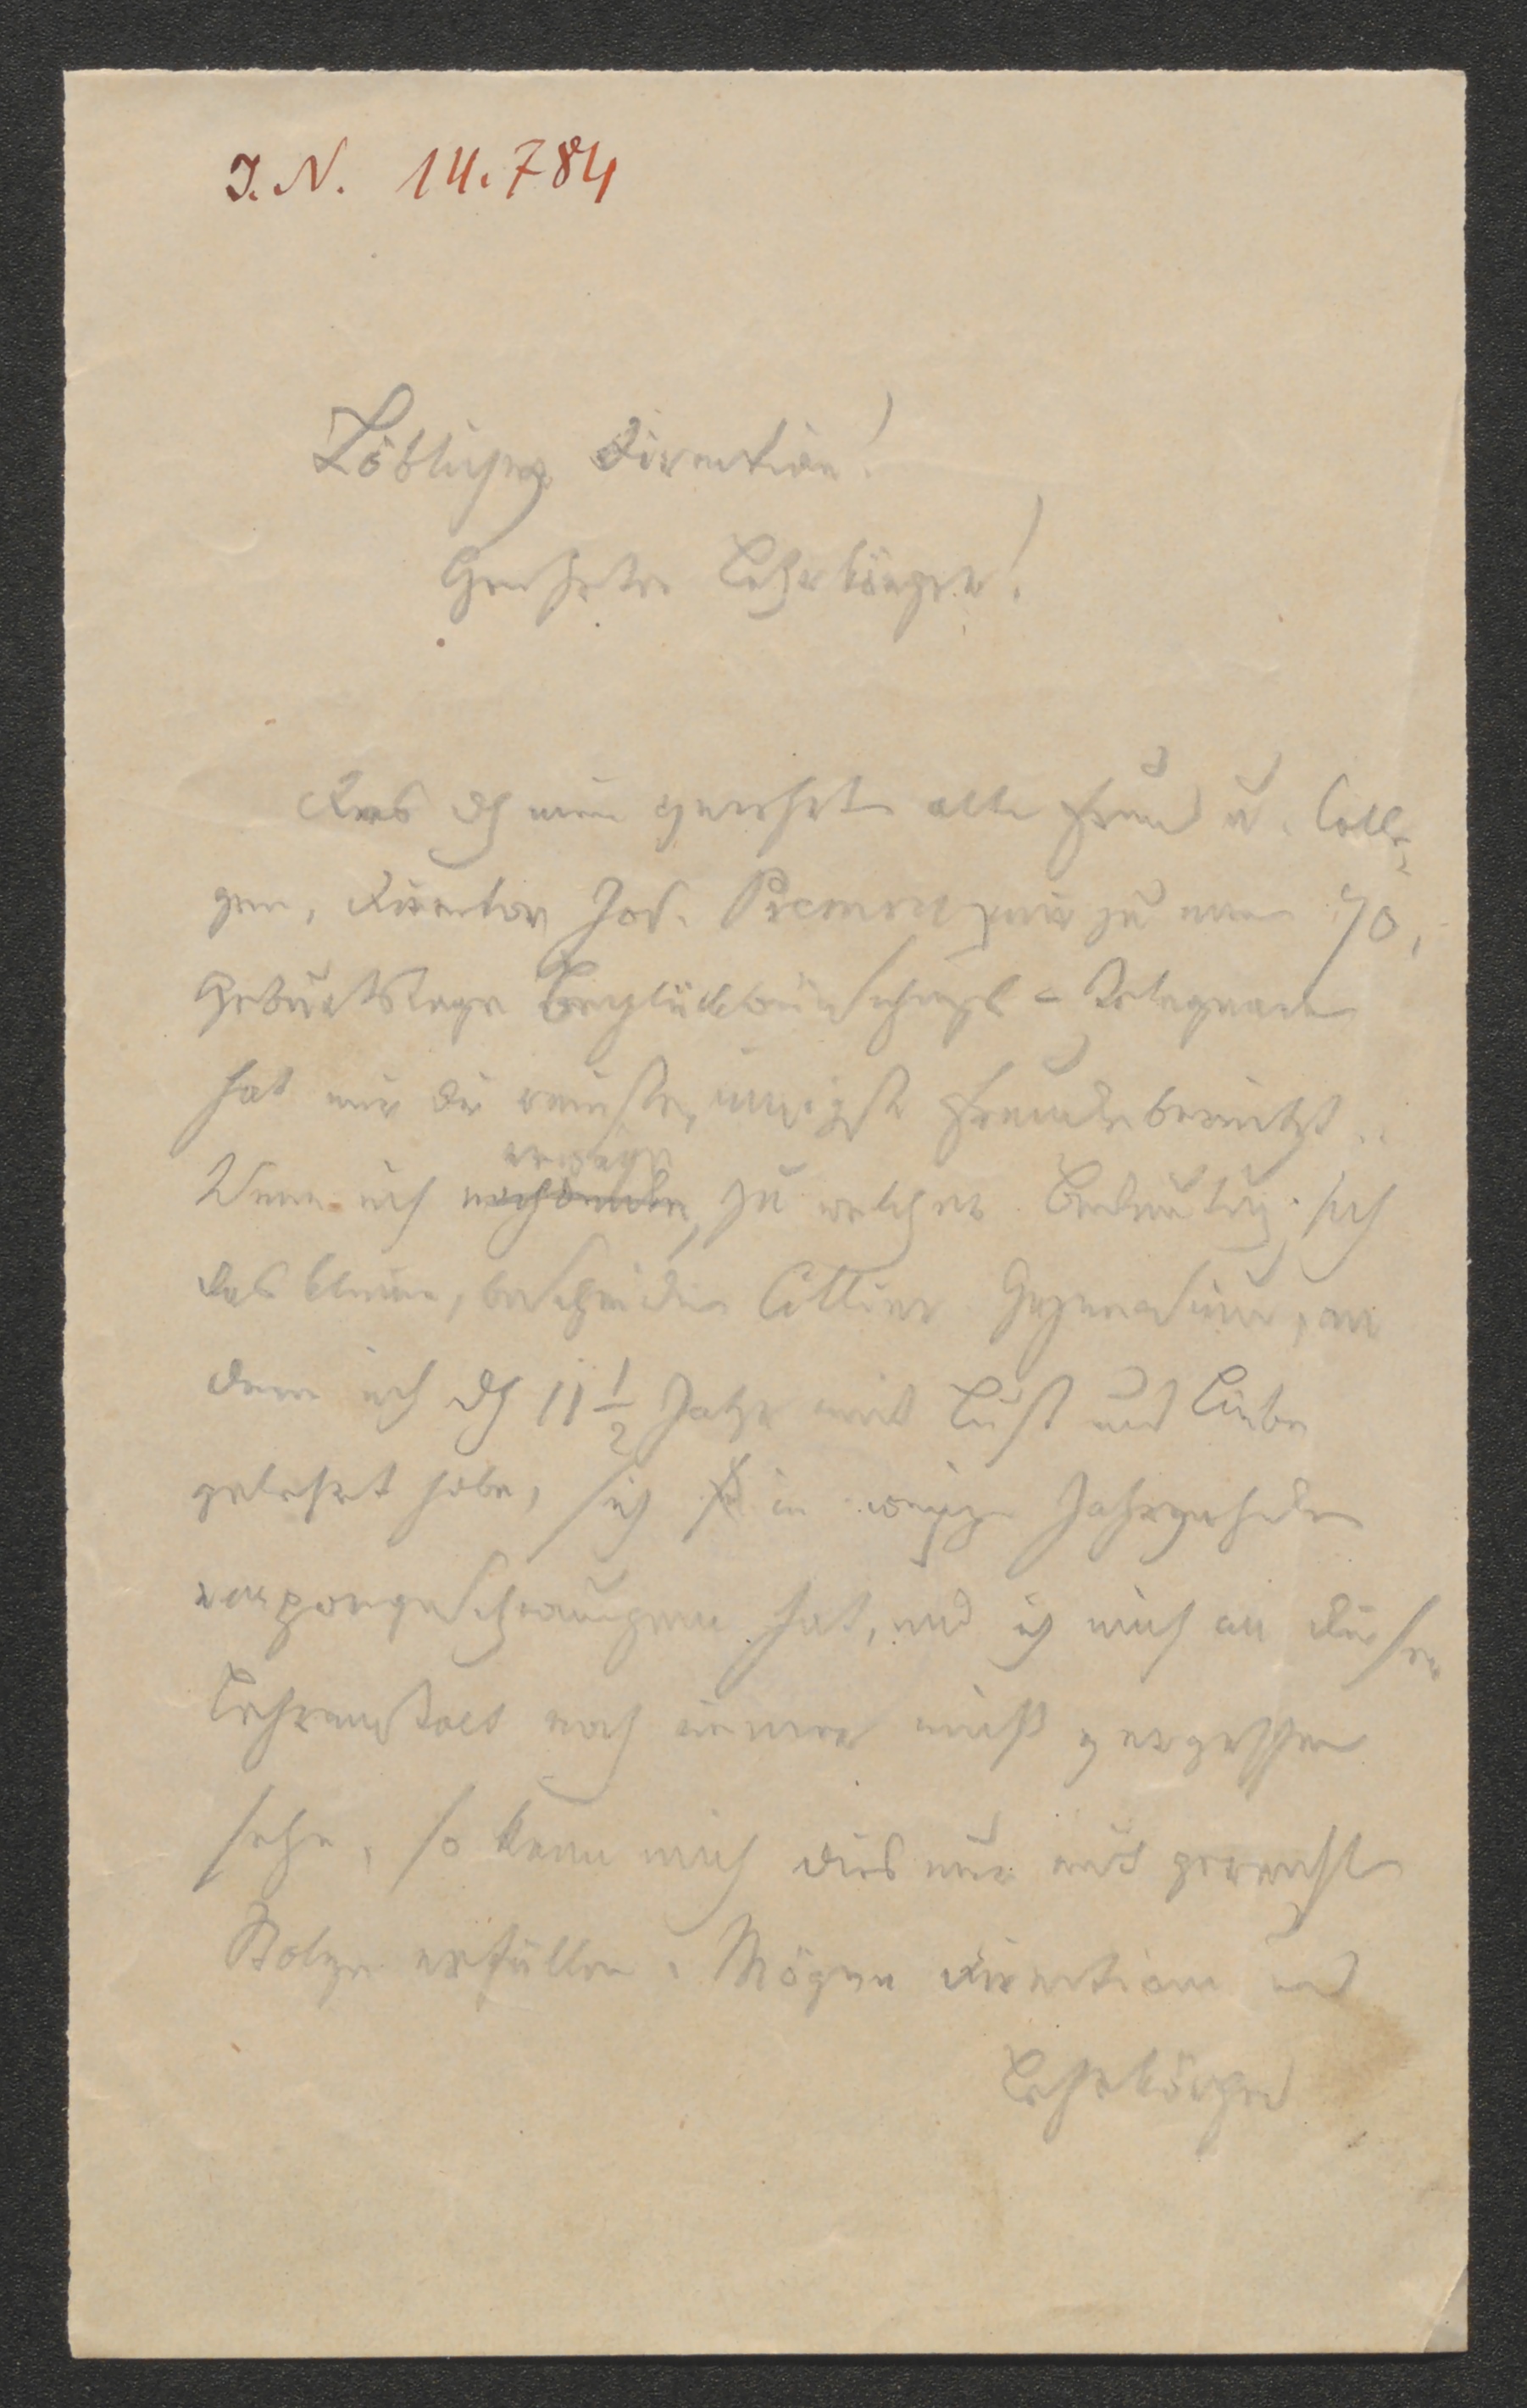 I. N. 14.784
Löbliche Direction!
Geehrter Lehrkörper!
Das dch mein geehrten alten Freund u. Colle-
gen, Director Jos. zu meinem 70.
Geburtstage Beglückwünschungs-Telegramm
hat mir die reinste, innigste Freude bereitet.
Wenn ich nachdenke erwäge, zu welcher Bedeutung sich
das kleine, bescheidene Cillier Gymnasium, an
dem ich dch 11 1/2 Jahre mit Lust und Liebe
gelehrt habe, sich in wenigen Jahrzehnten
emporgeschwungen hat, und ich mich an dieser
Lehranstalt noch immer nicht vergessen
sehe, so kann mich dies nur mit gerechtem
Stolze erfüllen. Mögen Direction und
Lehrkörper